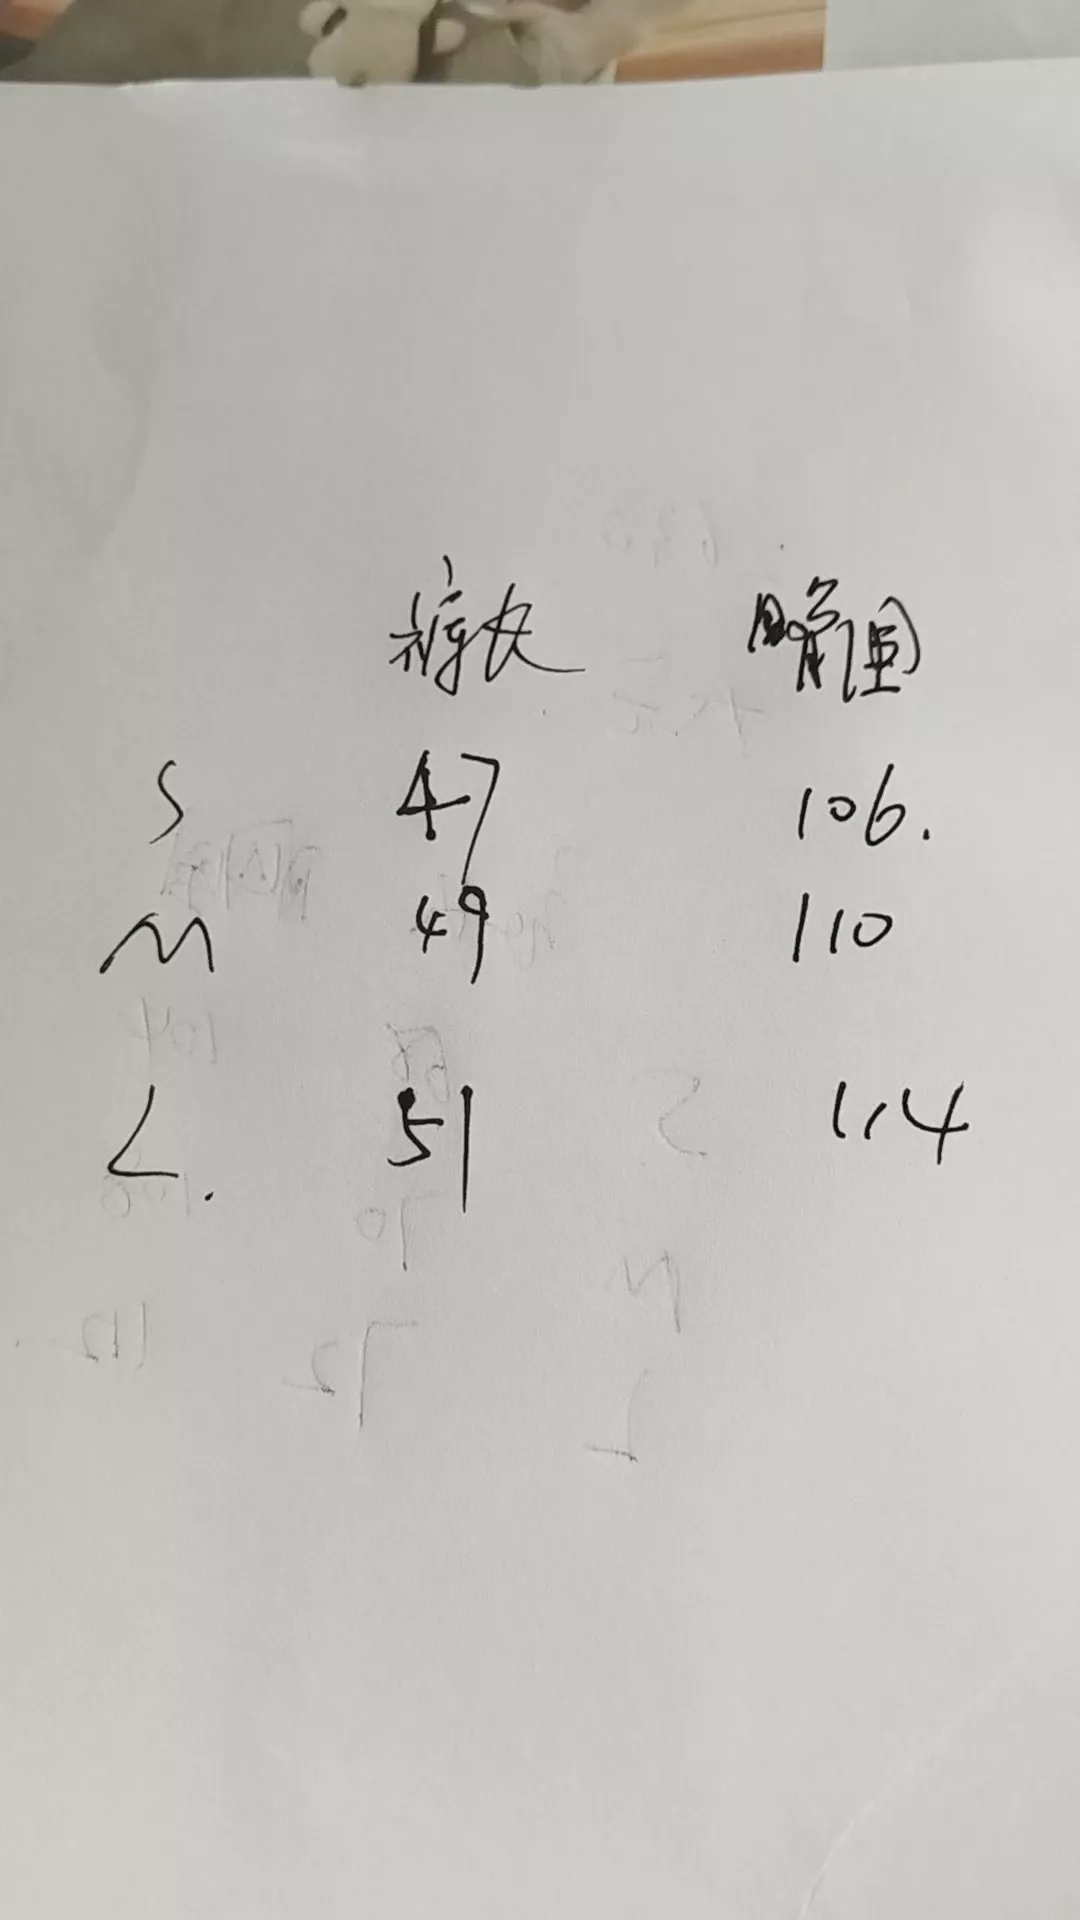 裤长 臀围
S 47 106.
M 49 110
L. 51 114